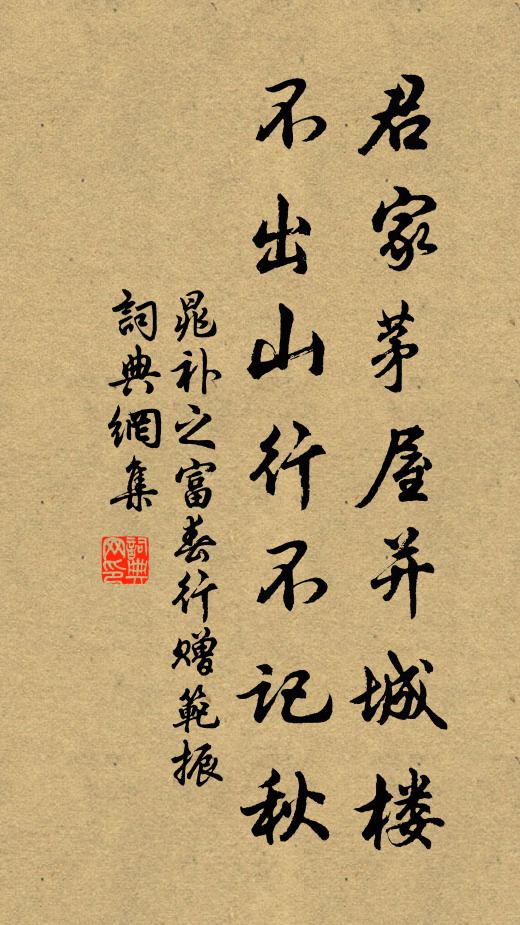 君家茅屋并城楼
不出山行不记秋
晁补之富春行赠範振
詞典網集
詞典网印